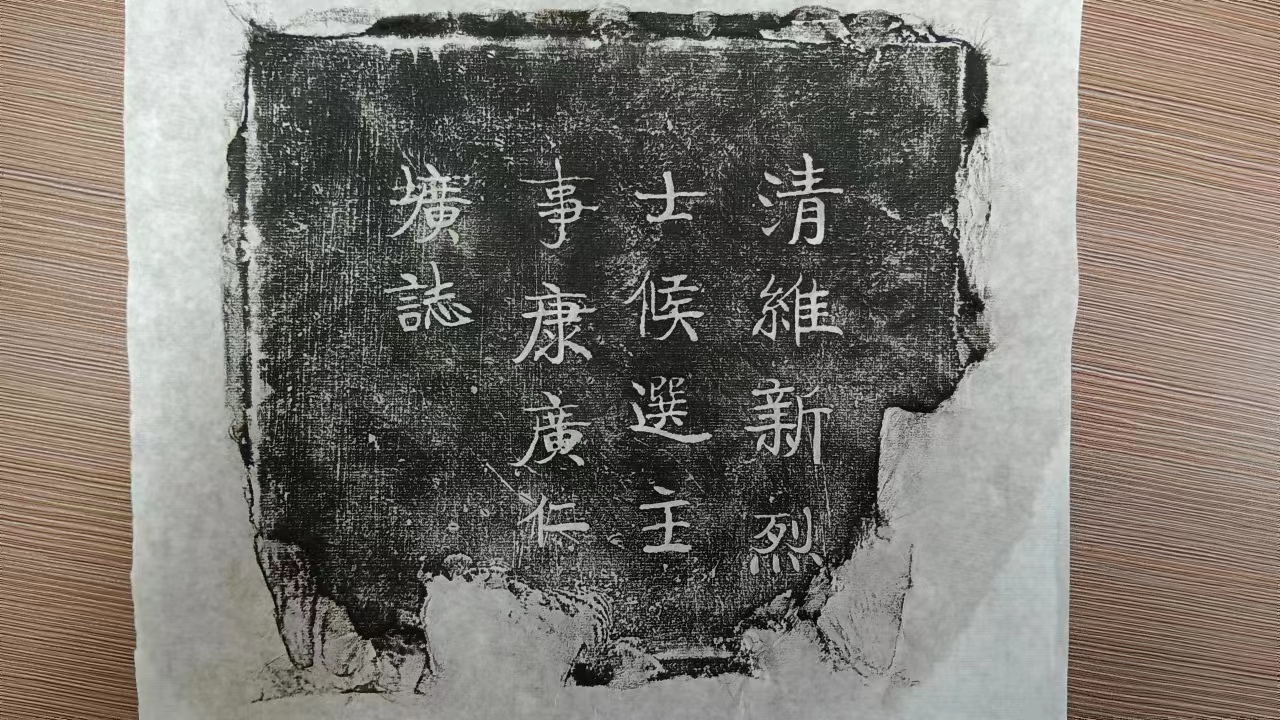 清維新烈
士候選主
事康廣仁
壙誌